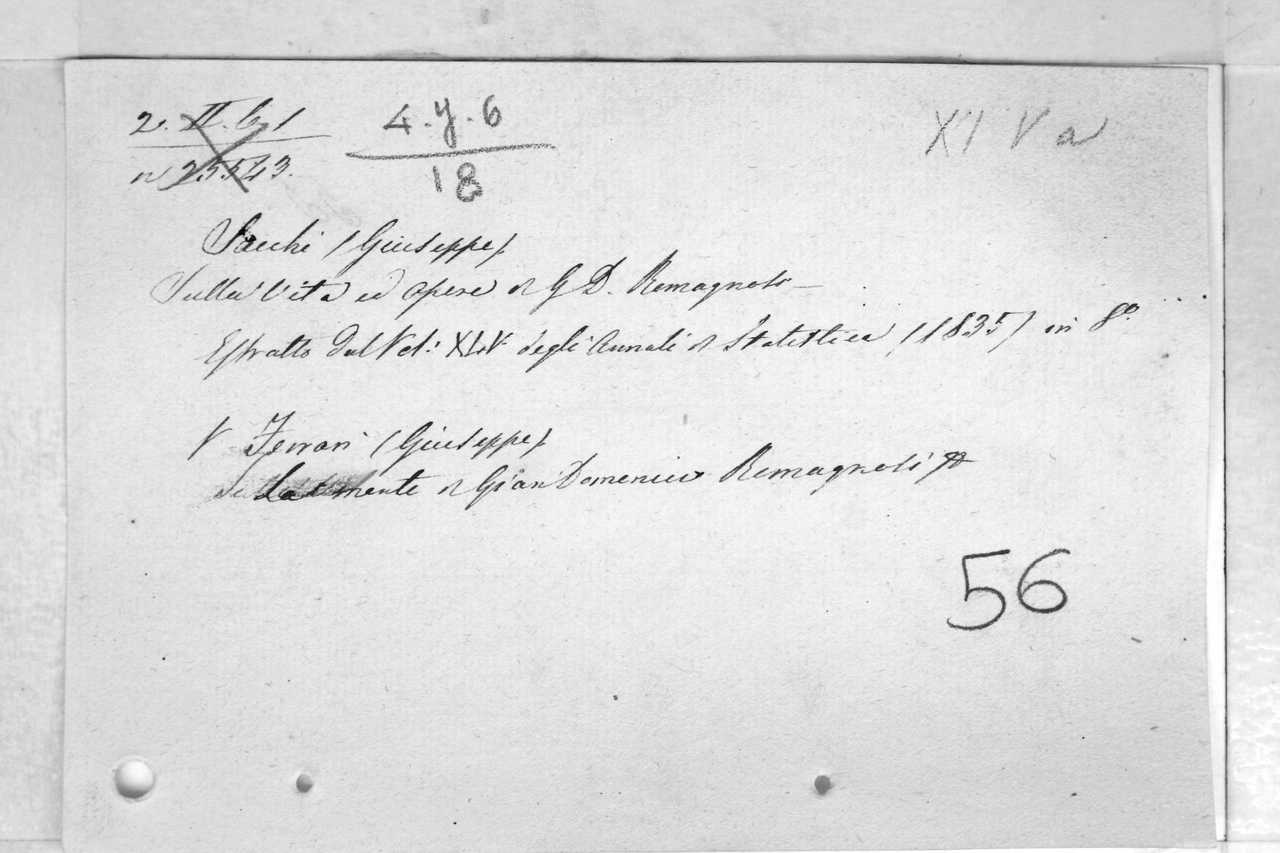 2. II. 6. 1
n 25543.
4. y. 6
18
XI V a
Sacchi (Giuseppe)
Sulla vita ed opere di G D. Romagnosi —
Estratto dal Vol: XLV degli Annali di Statistica (1835) in 8º.
V Ferrari (Giuseppe)
La mente di Gian Domenico Romagnosi
56